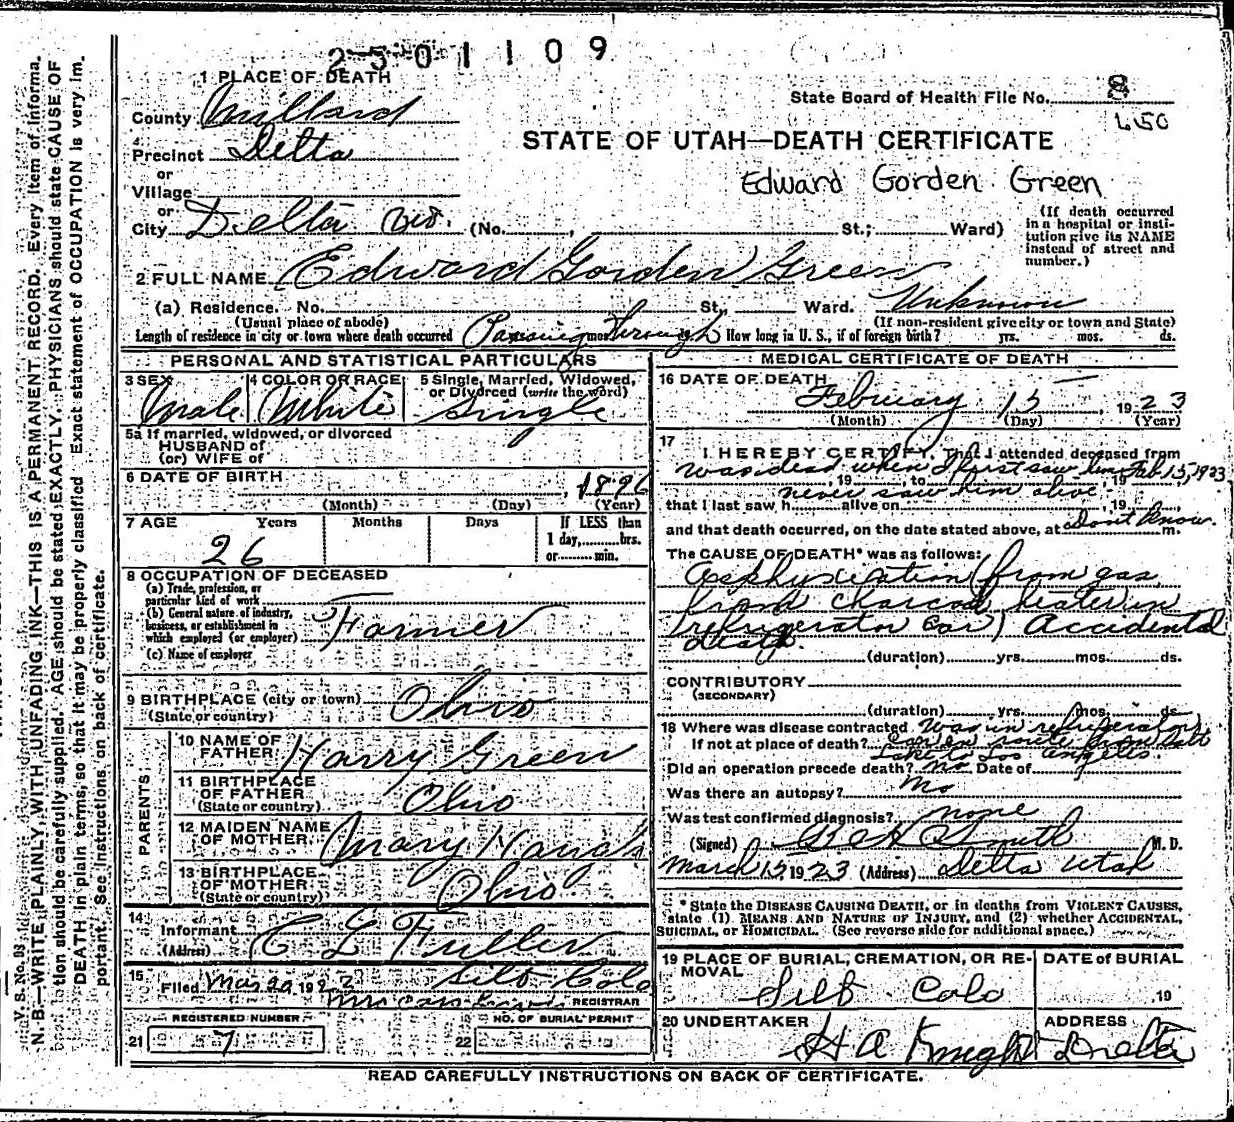 2501109
1 PLACE OF DEATH
State Board of Health File No. 8
450
County Millard
STATE OF UTAH—DEATH CERTIFICATE
Precinct Delta
or
Village
Edward Gorden Green
or
City Delta (No. , St.; Ward)
(If death occurred in a hospital or institution give its NAME instead of street and number.)
2 FULL NAME Edward Gorden Green
(a) Residence. No. St., Ward. Unknown
(Usual place of abode) (If non-resident give city or town and State)
Length of residence in city or town where death occurred Passing Through How long in U. S., if of foreign birth? yrs. mos. ds.
PERSONAL AND STATISTICAL PARTICULARS
3 SEX Male
4 COLOR OR RACE White
5 Single, Married, Widowed, or Divorced (write the word) Single
5a If married, widowed, or divorced
HUSBAND of
(or) WIFE of
6 DATE OF BIRTH , 1896
(Month) (Day) (Year)
7 AGE Years Months Days If LESS than
1 day, hrs.
or min.
26
8 OCCUPATION OF DECEASED
(a) Trade, profession, or
particular kind of work
(b) General nature of industry,
business, or establishment in
which employed (or employer) Farmer
(c) Name of employer
9 BIRTHPLACE (city or town) Ohio
(State or country)
PARENTS
10 NAME OF FATHER Harry Green
11 BIRTHPLACE OF FATHER Ohio
(State or country)
12 MAIDEN NAME OF MOTHER Mary
13 BIRTHPLACE OF MOTHER Ohio
(State or country)
14
Informant C L Fuller
(Address) Silt Colo
15
Filed Mar 20, 192 Mrs
REGISTRAR
REGISTERED NUMBER
21 7
NO. OF BURIAL PERMIT
22
MEDICAL CERTIFICATE OF DEATH
16 DATE OF DEATH
February 15, 1923
(Month) (Day) (Year)
17
I HEREBY CERTIFY, That I attended deceased from
was dead when I first saw him Feb 15, 1923
, 19 , to , 19
never saw him alive
that I last saw h alive on , 19
and that death occurred, on the date stated above, at Don't know. m.
The CAUSE OF DEATH* was as follows:
Asphyxiation (from gas
from charcoal heater in
refrigerator car) Accidental
death.
(duration) yrs. mos. ds.
CONTRIBUTORY
(SECONDARY)
(duration) yrs. mos. ds.
18 Where was disease contracted Was in refrigerator
If not at place of death? car en route from Salt
Lake to Los Angeles.
Did an operation precede death? no Date of
Was there an autopsy? No
Was test confirmed diagnosis? none
(Signed) Smith M. D.
March 15 1923 (Address) Delta Utah
*State the DISEASE CAUSING DEATH, or in deaths from VIOLENT CAUSES,
state (1) MEANS AND NATURE OF INJURY, and (2) whether ACCIDENTAL,
SUICIDAL, or HOMICIDAL. (See reverse side for additional space.)
19 PLACE OF BURIAL, CREMATION, OR REMOVAL
Silt Colo
DATE OF BURIAL
, 19
20 UNDERTAKER
H A Knight
ADDRESS
Delta
READ CAREFULLY INSTRUCTIONS ON BACK OF CERTIFICATE.
V. S. No. 93
N. B.—WRITE PLAINLY, WITH UNFADING INK—THIS IS A PERMANENT RECORD. Every item of informa-
tion should be carefully supplied. AGE should be stated EXACTLY. PHYSICIANS should state CAUSE OF
DEATH in plain terms, so that it may be properly classified. Exact statement of OCCUPATION is very im-
portant. See instructions on back of certificate.